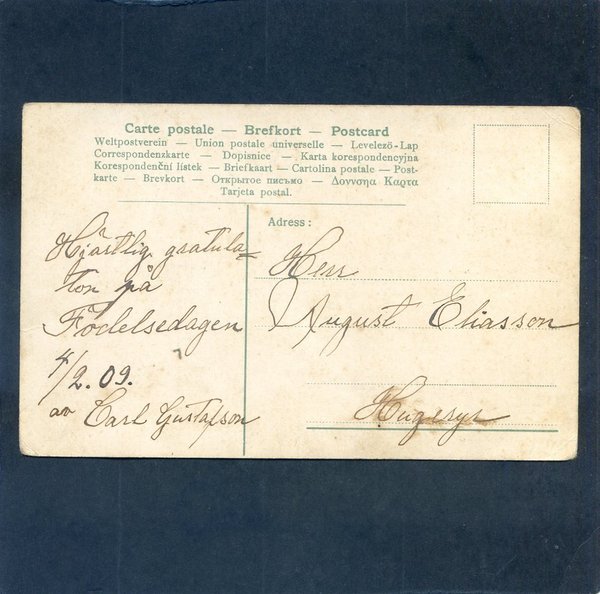 Carte postale — Brefkort — Postcard
Weltpostverein — Union postale universelle — Levelező-Lap
Correspondenzkarte — Dopisnice — Karta korespondencyjna
Korespondenční lístek — Briefkaart — Cartolina postale — Post-
karte — Brevkort — Открытое письмо — Δοννσηα Καρτα
Tarjeta postal.
Hjärtlig gratula=
ton på
Födelsedagen
4/2. 09.
av Carl Gustafson
Adress:
Herr
August Eliasson